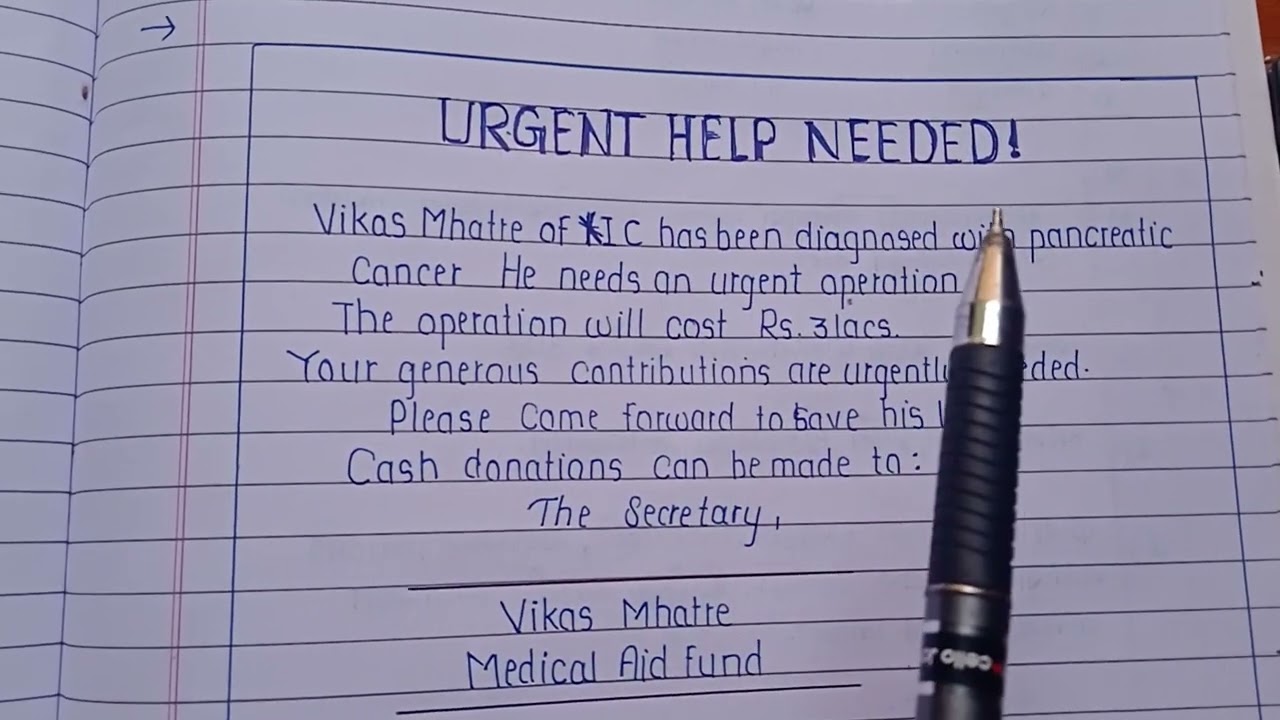 →
URGENT HELP NEEDED!
Vikas Mhatre of IC has been diagnosed with pancreatic
Cancer He needs an urgent operation
The operation will cost Rs. 3lacs.
Your generous contributions are urgently
Please Come forward to save his
Cash donations can be made to:
The Secretary,
Vikas Mhatre
Medical Aid Fund
cello